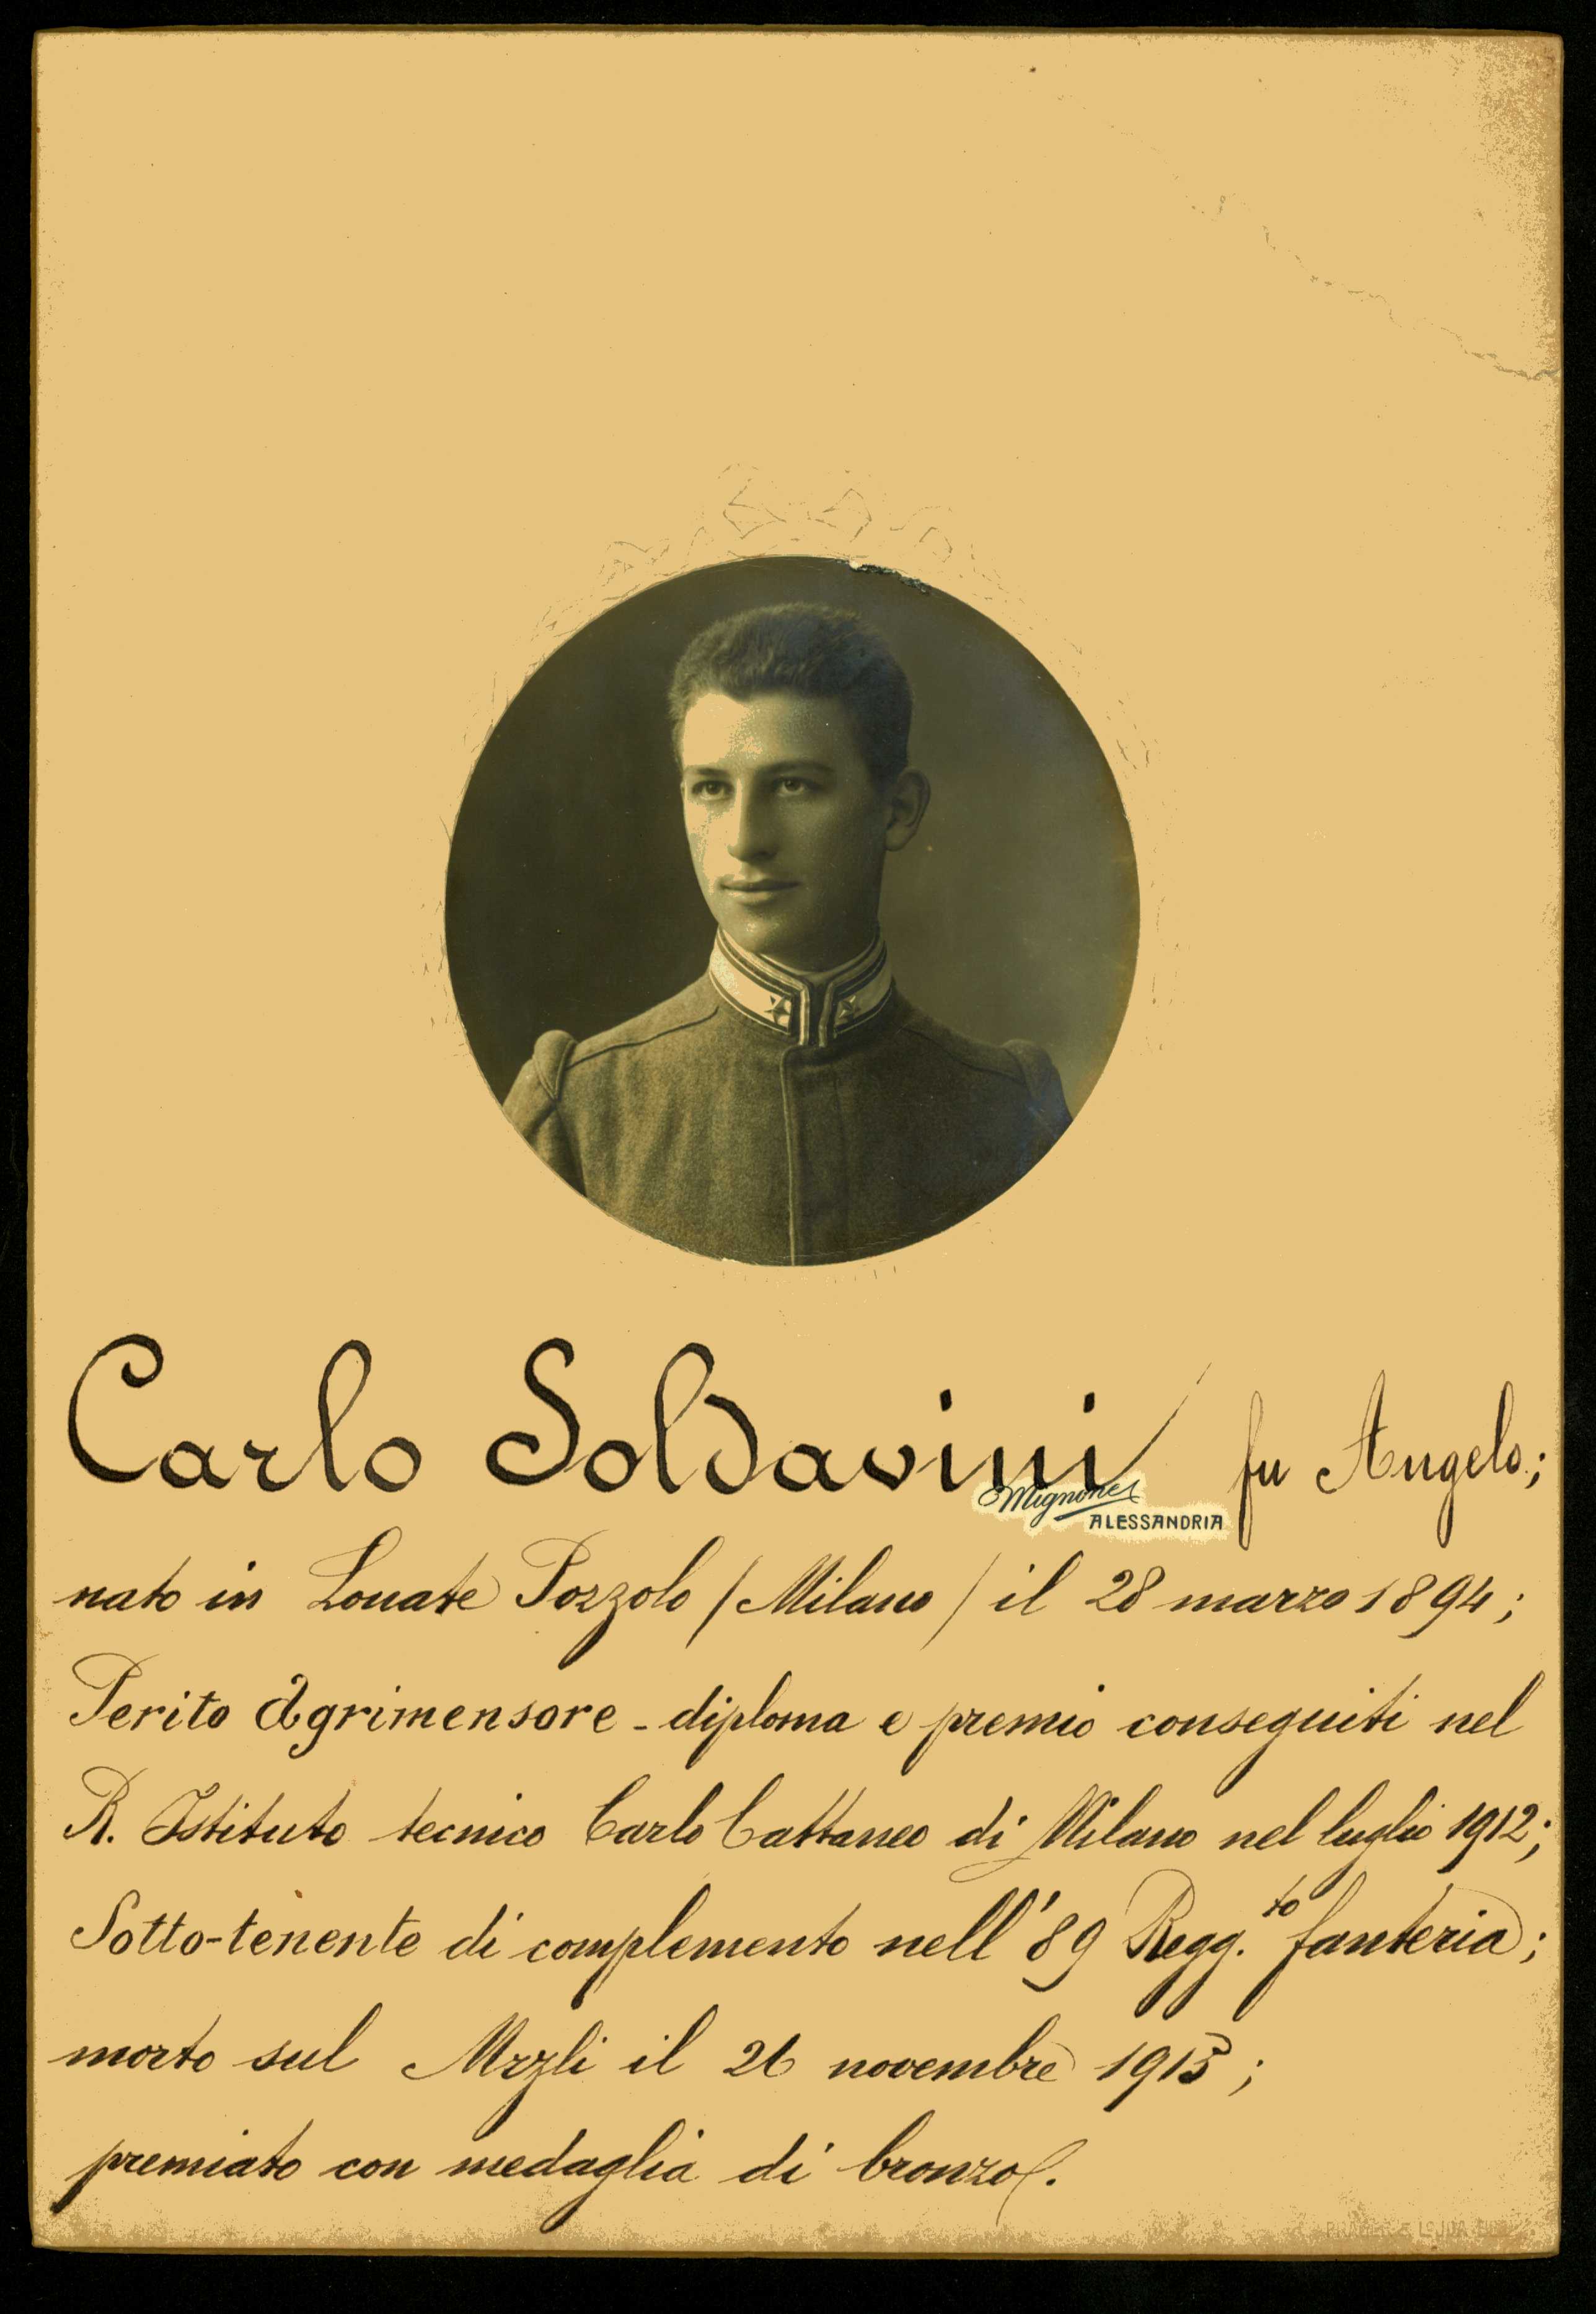 Carlo Soldavini fu Angelo;
Mignone
ALESSANDRIA
nato in Lonate Pozzolo / Milano / il 28 marzo 1894;
Perito Agrimensore - diploma e premio conseguiti nel
R. Istituto tecnico Carlo Cattaneo di Milano nel luglio 1912;
Sotto-tenente di complemento nell'89 Regg.to fanteria;
morto sul Mrzli il 26 novembre 1915;
premiato con medaglia di bronzo.